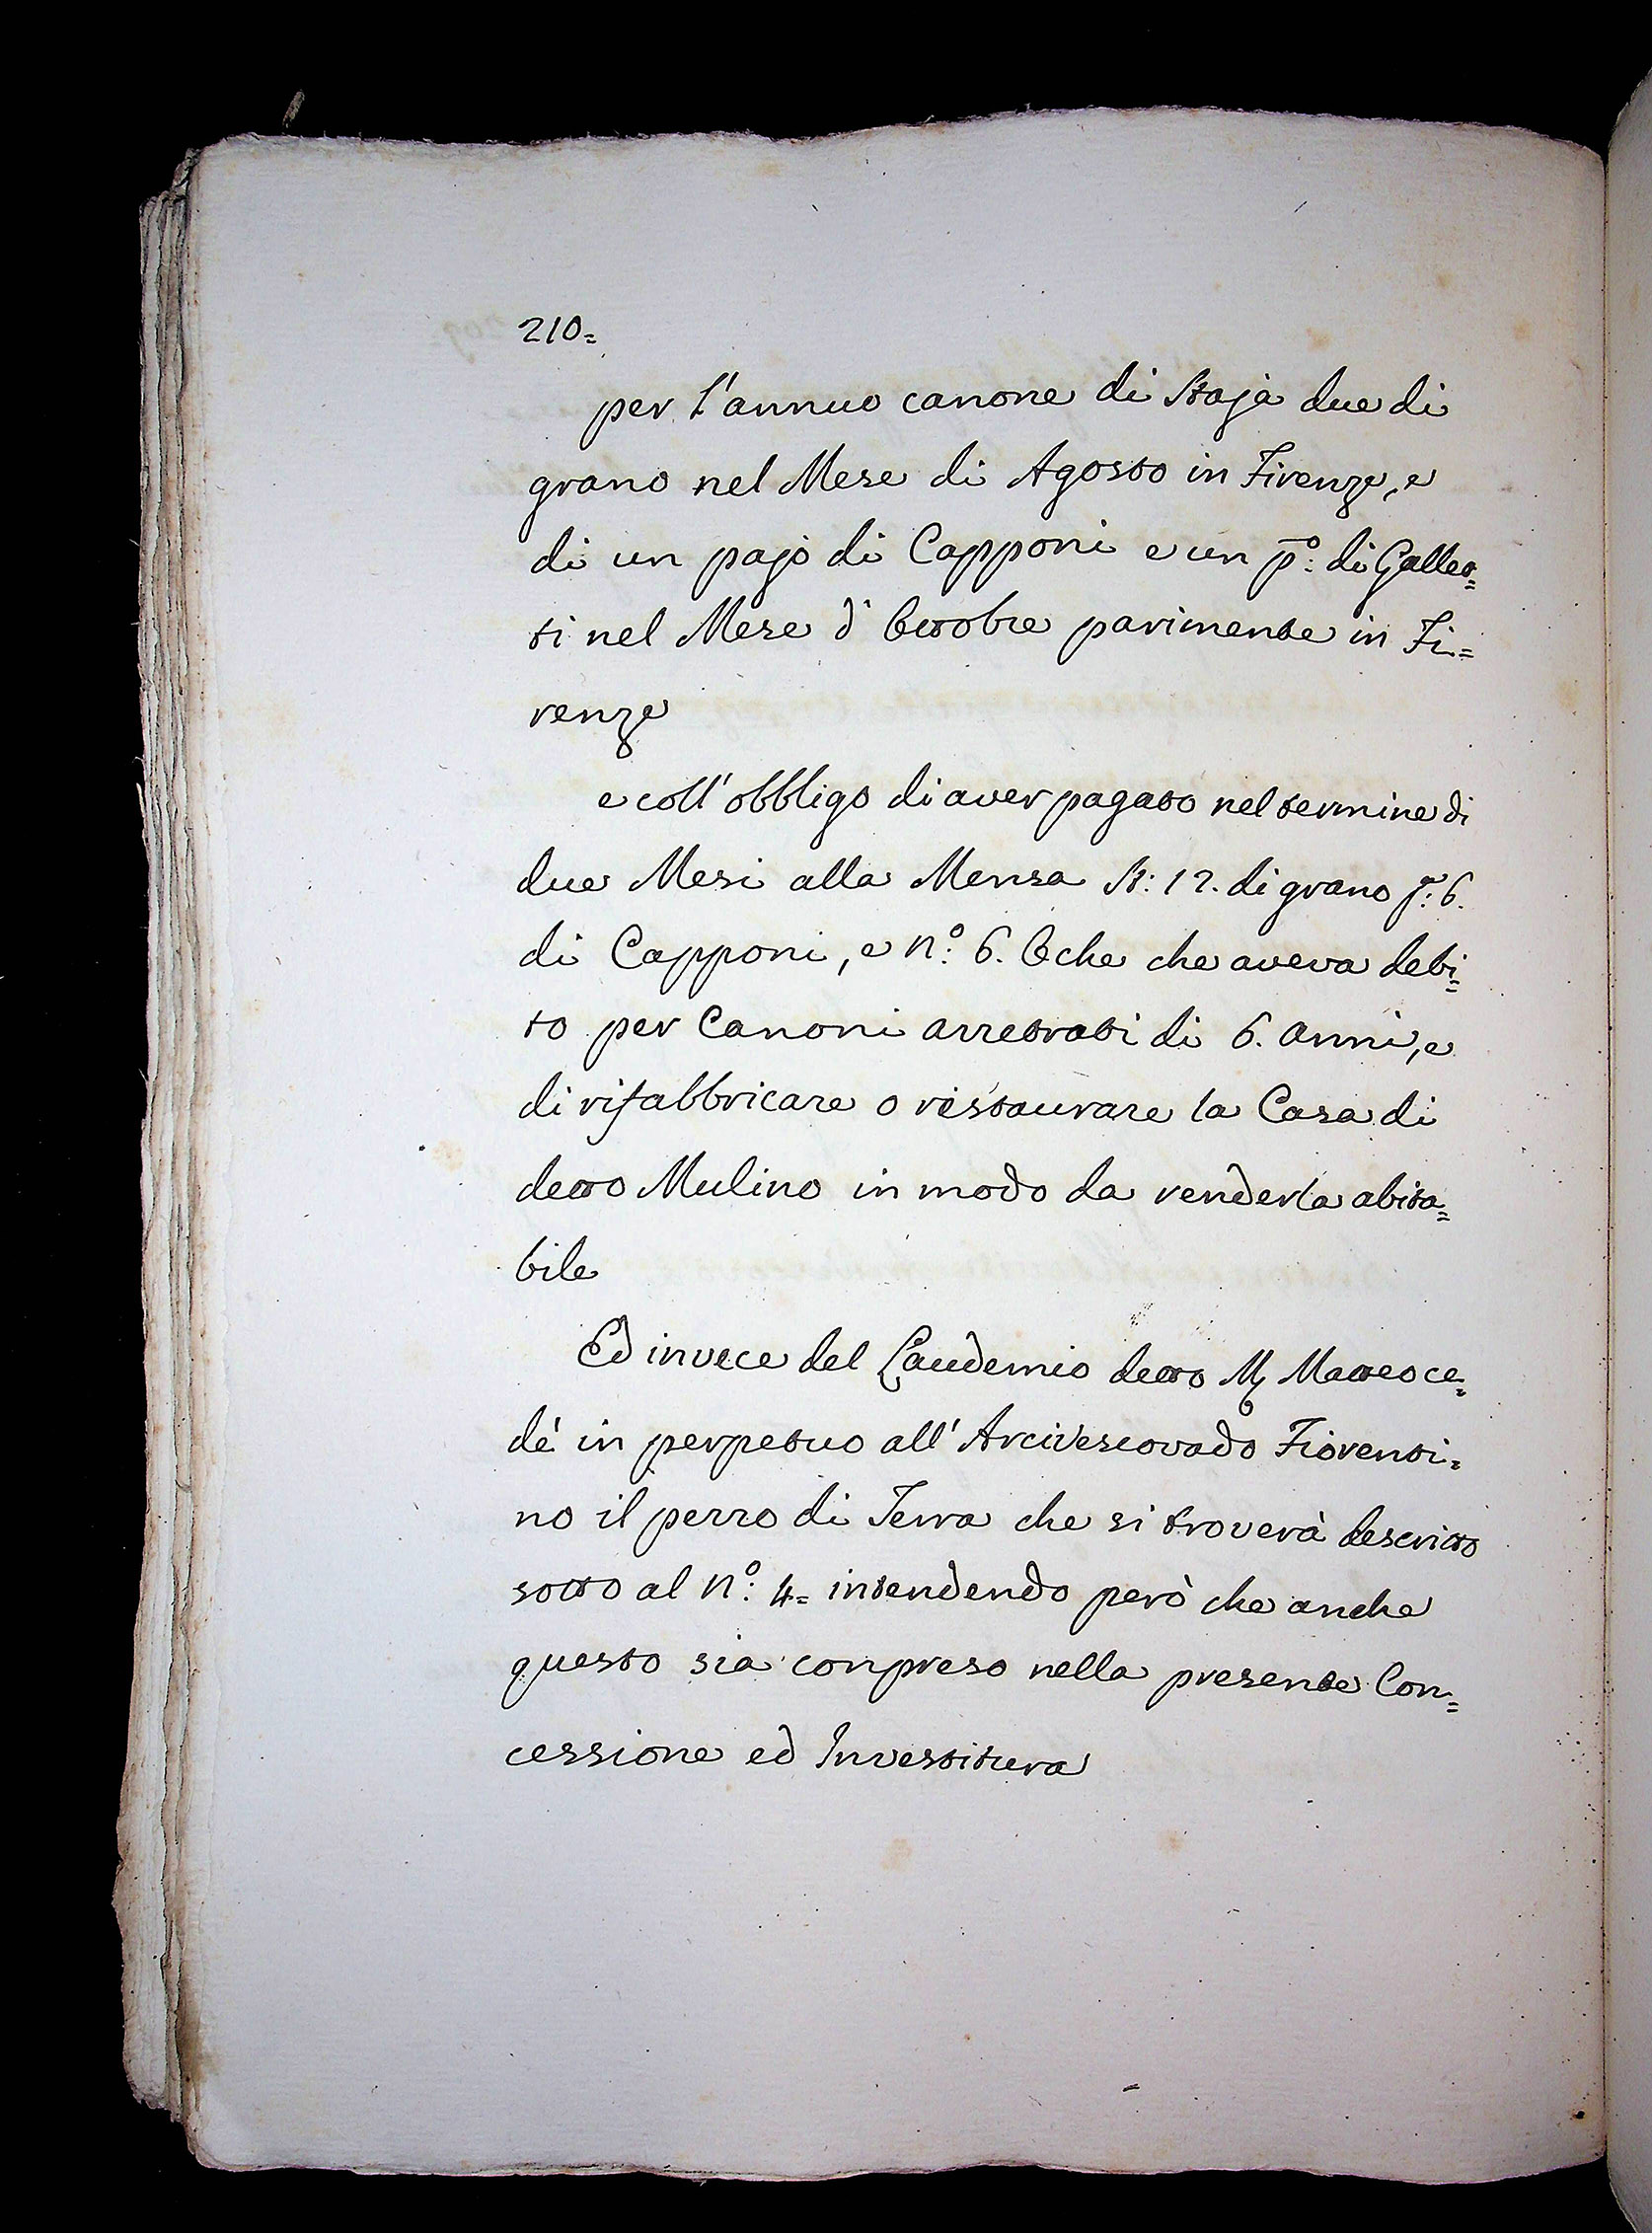 210=
per l'annuo canone di Staja due di
grano nel Mese di Agosto in Firenze, e
di un pajo di Capponi e un p.º: di Galleo=
ti nel Mese d'Ottobre parimente in Fi=
renze
e coll'obbligo di aver pagato nel termine di
due Mesi alla Mensa St: 12. di grano p.ª: 6.
di Capponi, e n.º: 6. Oche che aveva debi=
to per Canoni arretrati di 6. anni, e
di rifabbricare o restaurare la Casa di
detto Mulino in modo da renderla abita=
bile
Ed invece del Laudemio detto M. Matteo ce=
dè in perpetuo all'Arcivescovado Fiorenti=
no il pezzo di Terra che si troverà descritto
sotto al n.º: 4= intendendo però che anche
questo sia compreso nella presente Con=
cessione ed Investitura